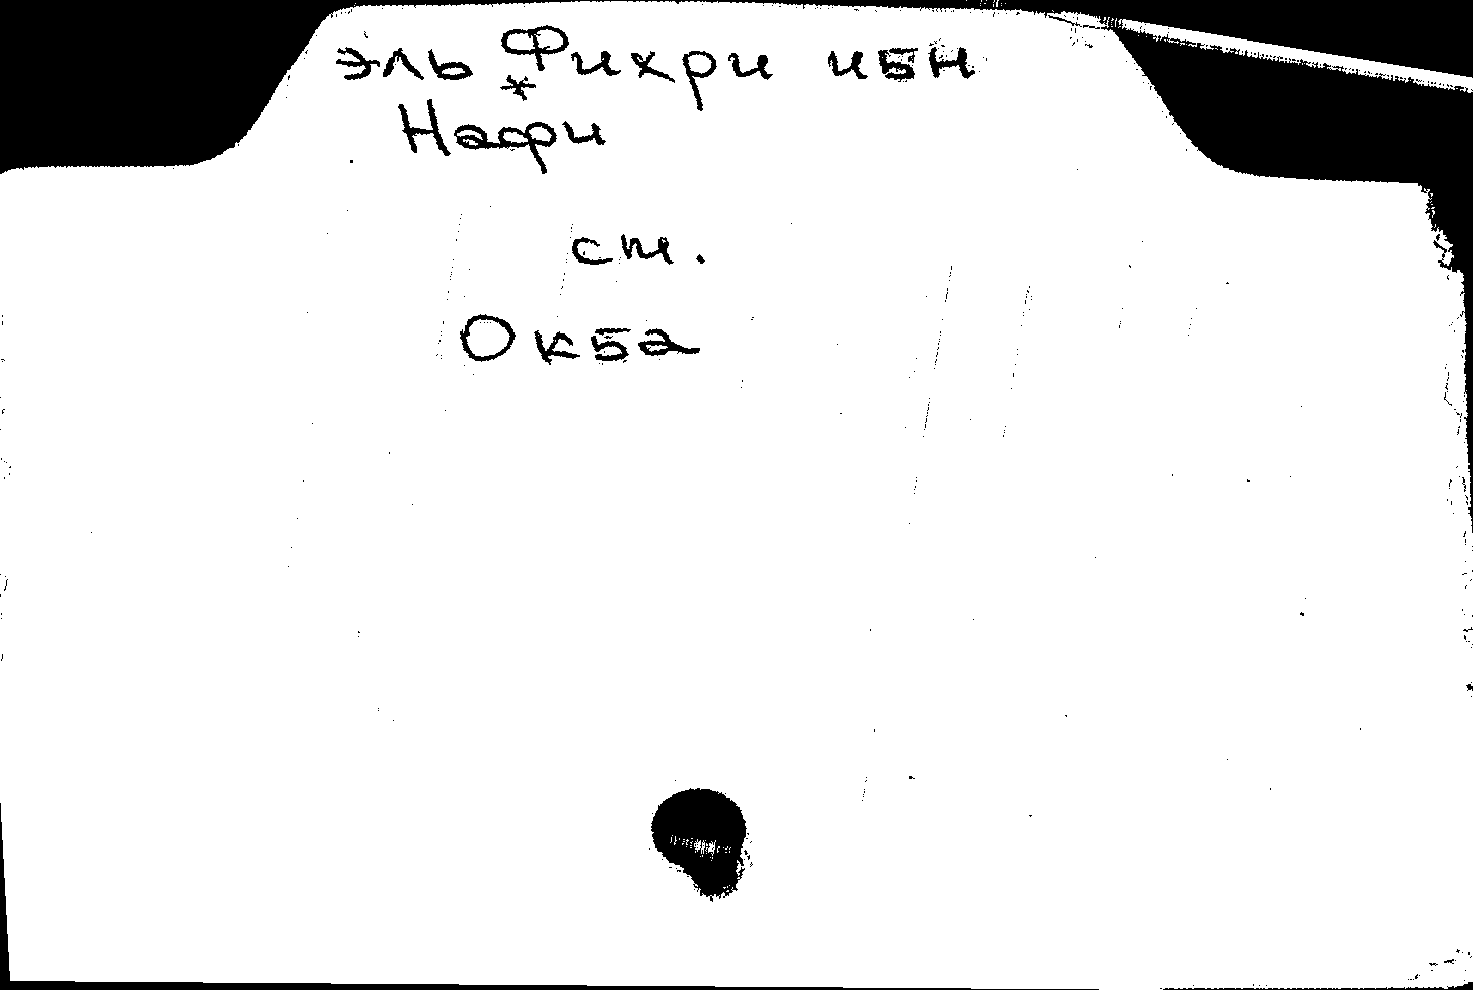 эль Фихри ибн
*
Нафи
ст.
Окба